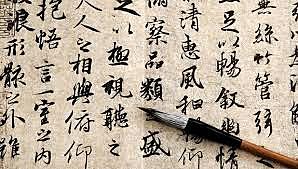 無絲竹管弦
足以暢敘幽情
清惠風和暢仰
察品類盛
足以極視聽之
人之相與俯仰
抱悟言一室之內
浪形骸之外雖